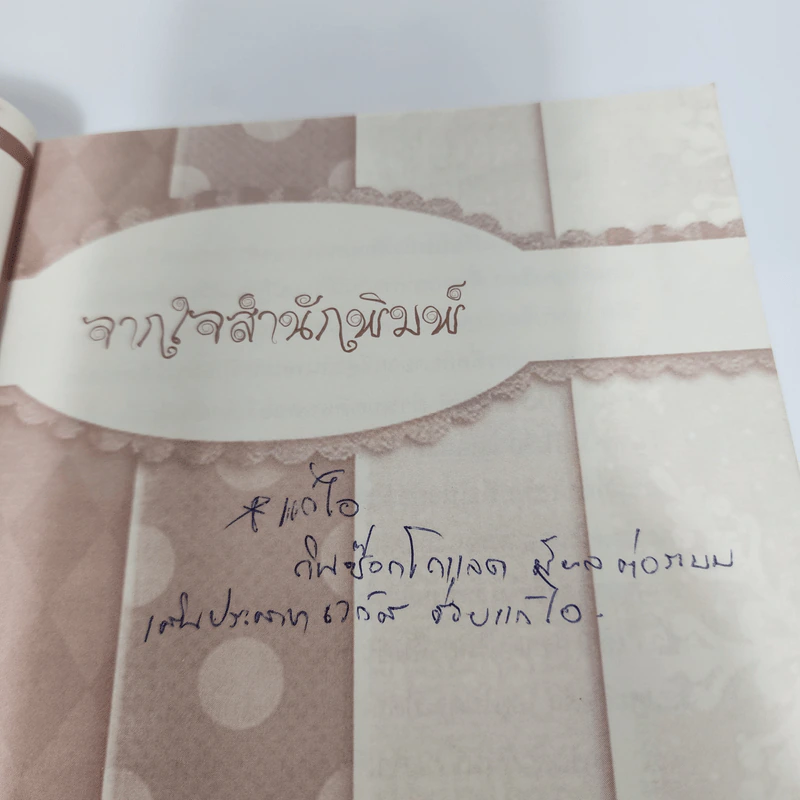 จากใจสำนักพิมพ์
* แก้ไอ
กินช๊อกโกแลต มีผล ต่อระบบ
เส้นประสาท เวกัส ช่วยแก้ไอ.